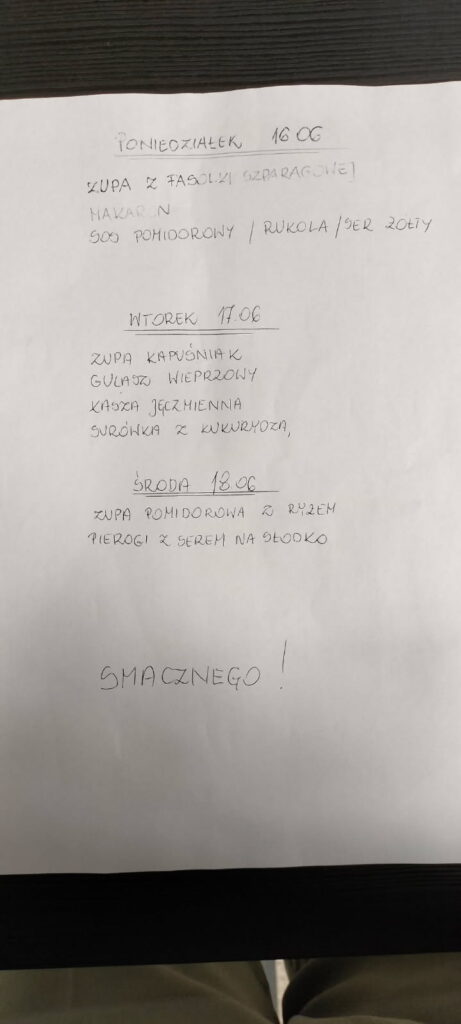 PONIEDZIAŁEK 16.06
ZUPA Z FASOLKI SZPARAGOWEJ
MAKARON
SOS POMIDOROWY / RUKOLA / SER ŻÓŁTY
WTOREK 17.06
ZUPA KAPUŚNIAK
GULASZ WIEPRZOWY
KASZA JĘCZMIENNA
SURÓWKA Z KUKURYDZĄ
ŚRODA 18.06
ZUPA POMIDOROWA Z RYŻEM
PIEROGI Z SEREM NA SŁODKO
SMACZNEGO!